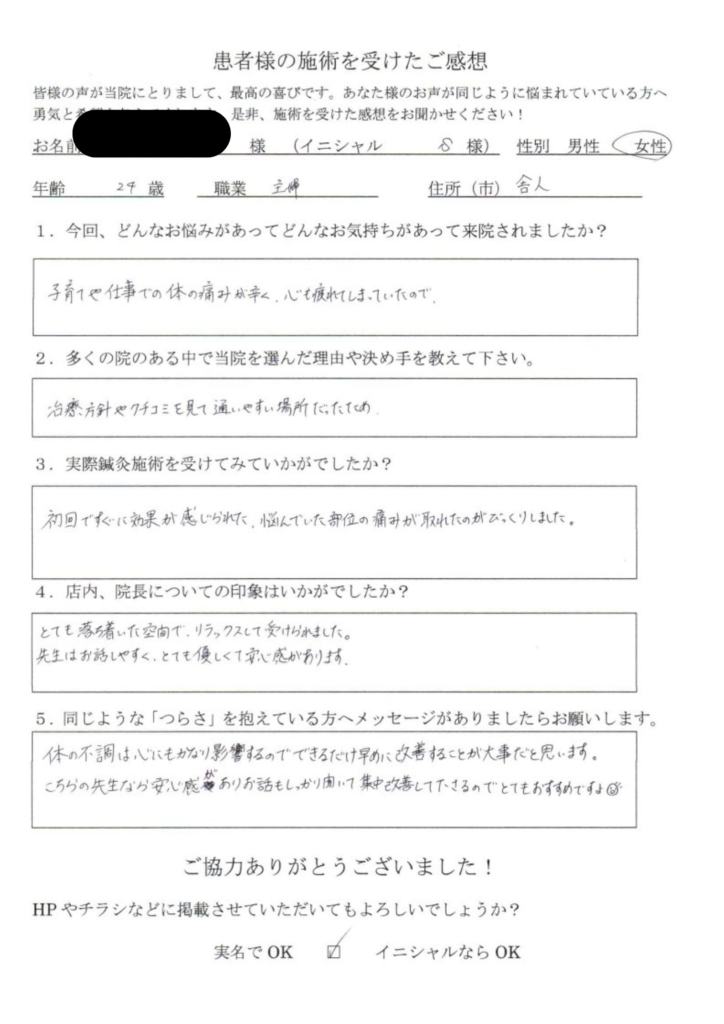 患者様の施術を受けたご感想
皆様の声が当院にとりまして、最高の喜びです。あなた様のお声が同じように悩まれていている方へ
勇気と 是非、施術を受けた感想をお聞かせください！
お名前 様 （イニシャル S 様） 性別 男性 女性
年齢 29 歳 職業 主婦 住所（市） 舎人
１．今回、どんなお悩みがあってどんなお気持ちがあって来院されましたか？
子育てや仕事での体の痛みが辛く、心も疲れてしまっていたので、
２．多くの院のある中で当院を選んだ理由や決め手を教えて下さい。
治療方針やクチコミを見て通いやすい場所だったため
３．実際鍼灸施術を受けてみていかがでしたか？
初回ですぐに効果が感じられた、悩んでいた部位の痛みが取れたのがびっくりしました。
４．店内、院長についての印象はいかがでしたか？
とても落ち着いた空間で、リラックスして受けられました。
先生はお話しやすく、とても優しくて安心感があります。
５．同じような「つらさ」を抱えている方へメッセージがありましたらお願いします。
体の不調は心にもかなり影響するのでできるだけ早めに改善することが大事だと思います。
こちらの先生なら安心感がありお話もしっかり聞いて集中改善して下さるのでとてもおすすめですよ
ご協力ありがとうございました！
HPやチラシなどに掲載させていただいてもよろしいでしょうか？
実名でOK ☑ イニシャルならOK